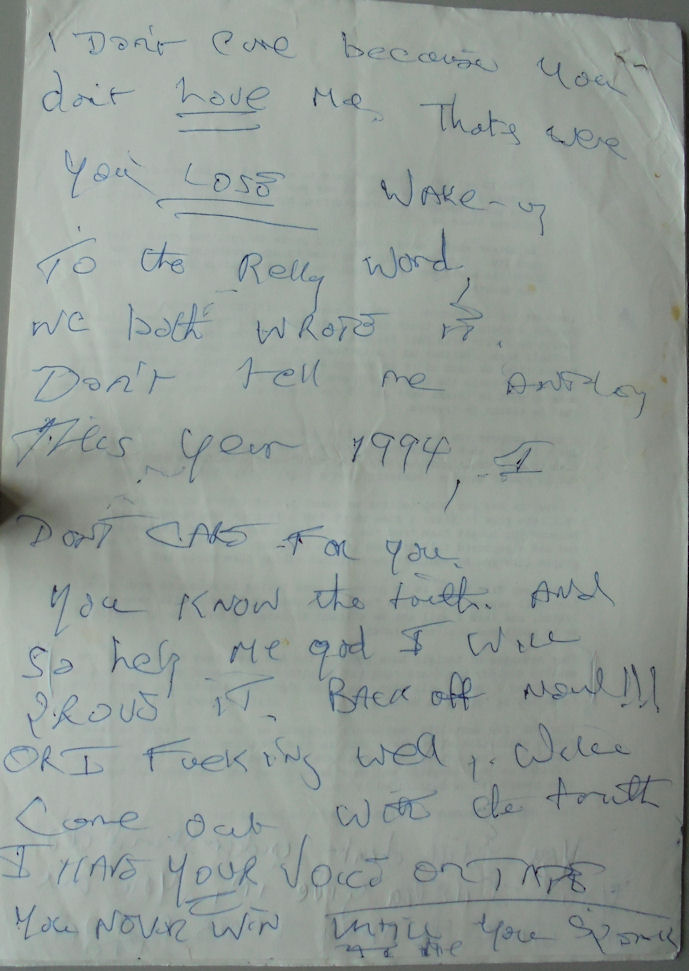 I Don't Care because you
don't have Me. That's were
You LOSE WAKE-UP
To the Relly Word,
we both WROTE IT.
Don't tell me
This year 1994, I
DON'T CARE FOR you.
You KNOW the truth. AND
So help Me god I Will
PROVE IT. BACK off NOW!!!
OR I Fucking well, Will
Come out with the truth
I HAVE YOUR VOICE ON TAPE
You NEVER WIN you